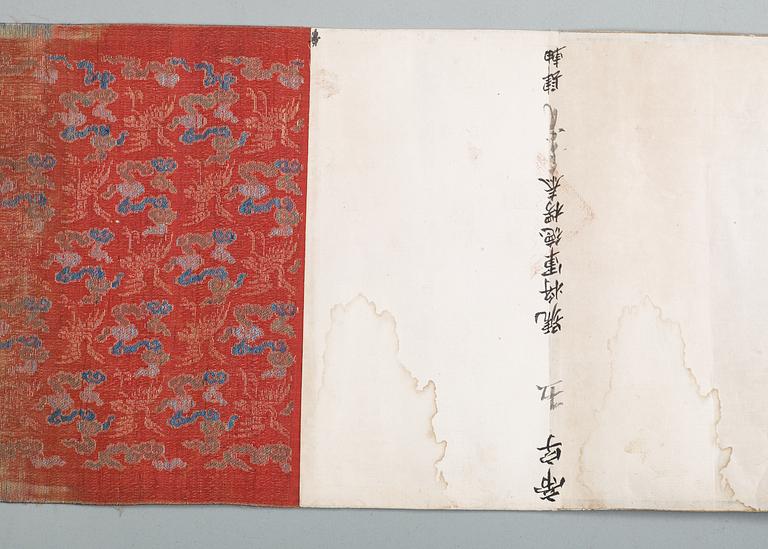 帝字五號將軍德楞泰肆軸